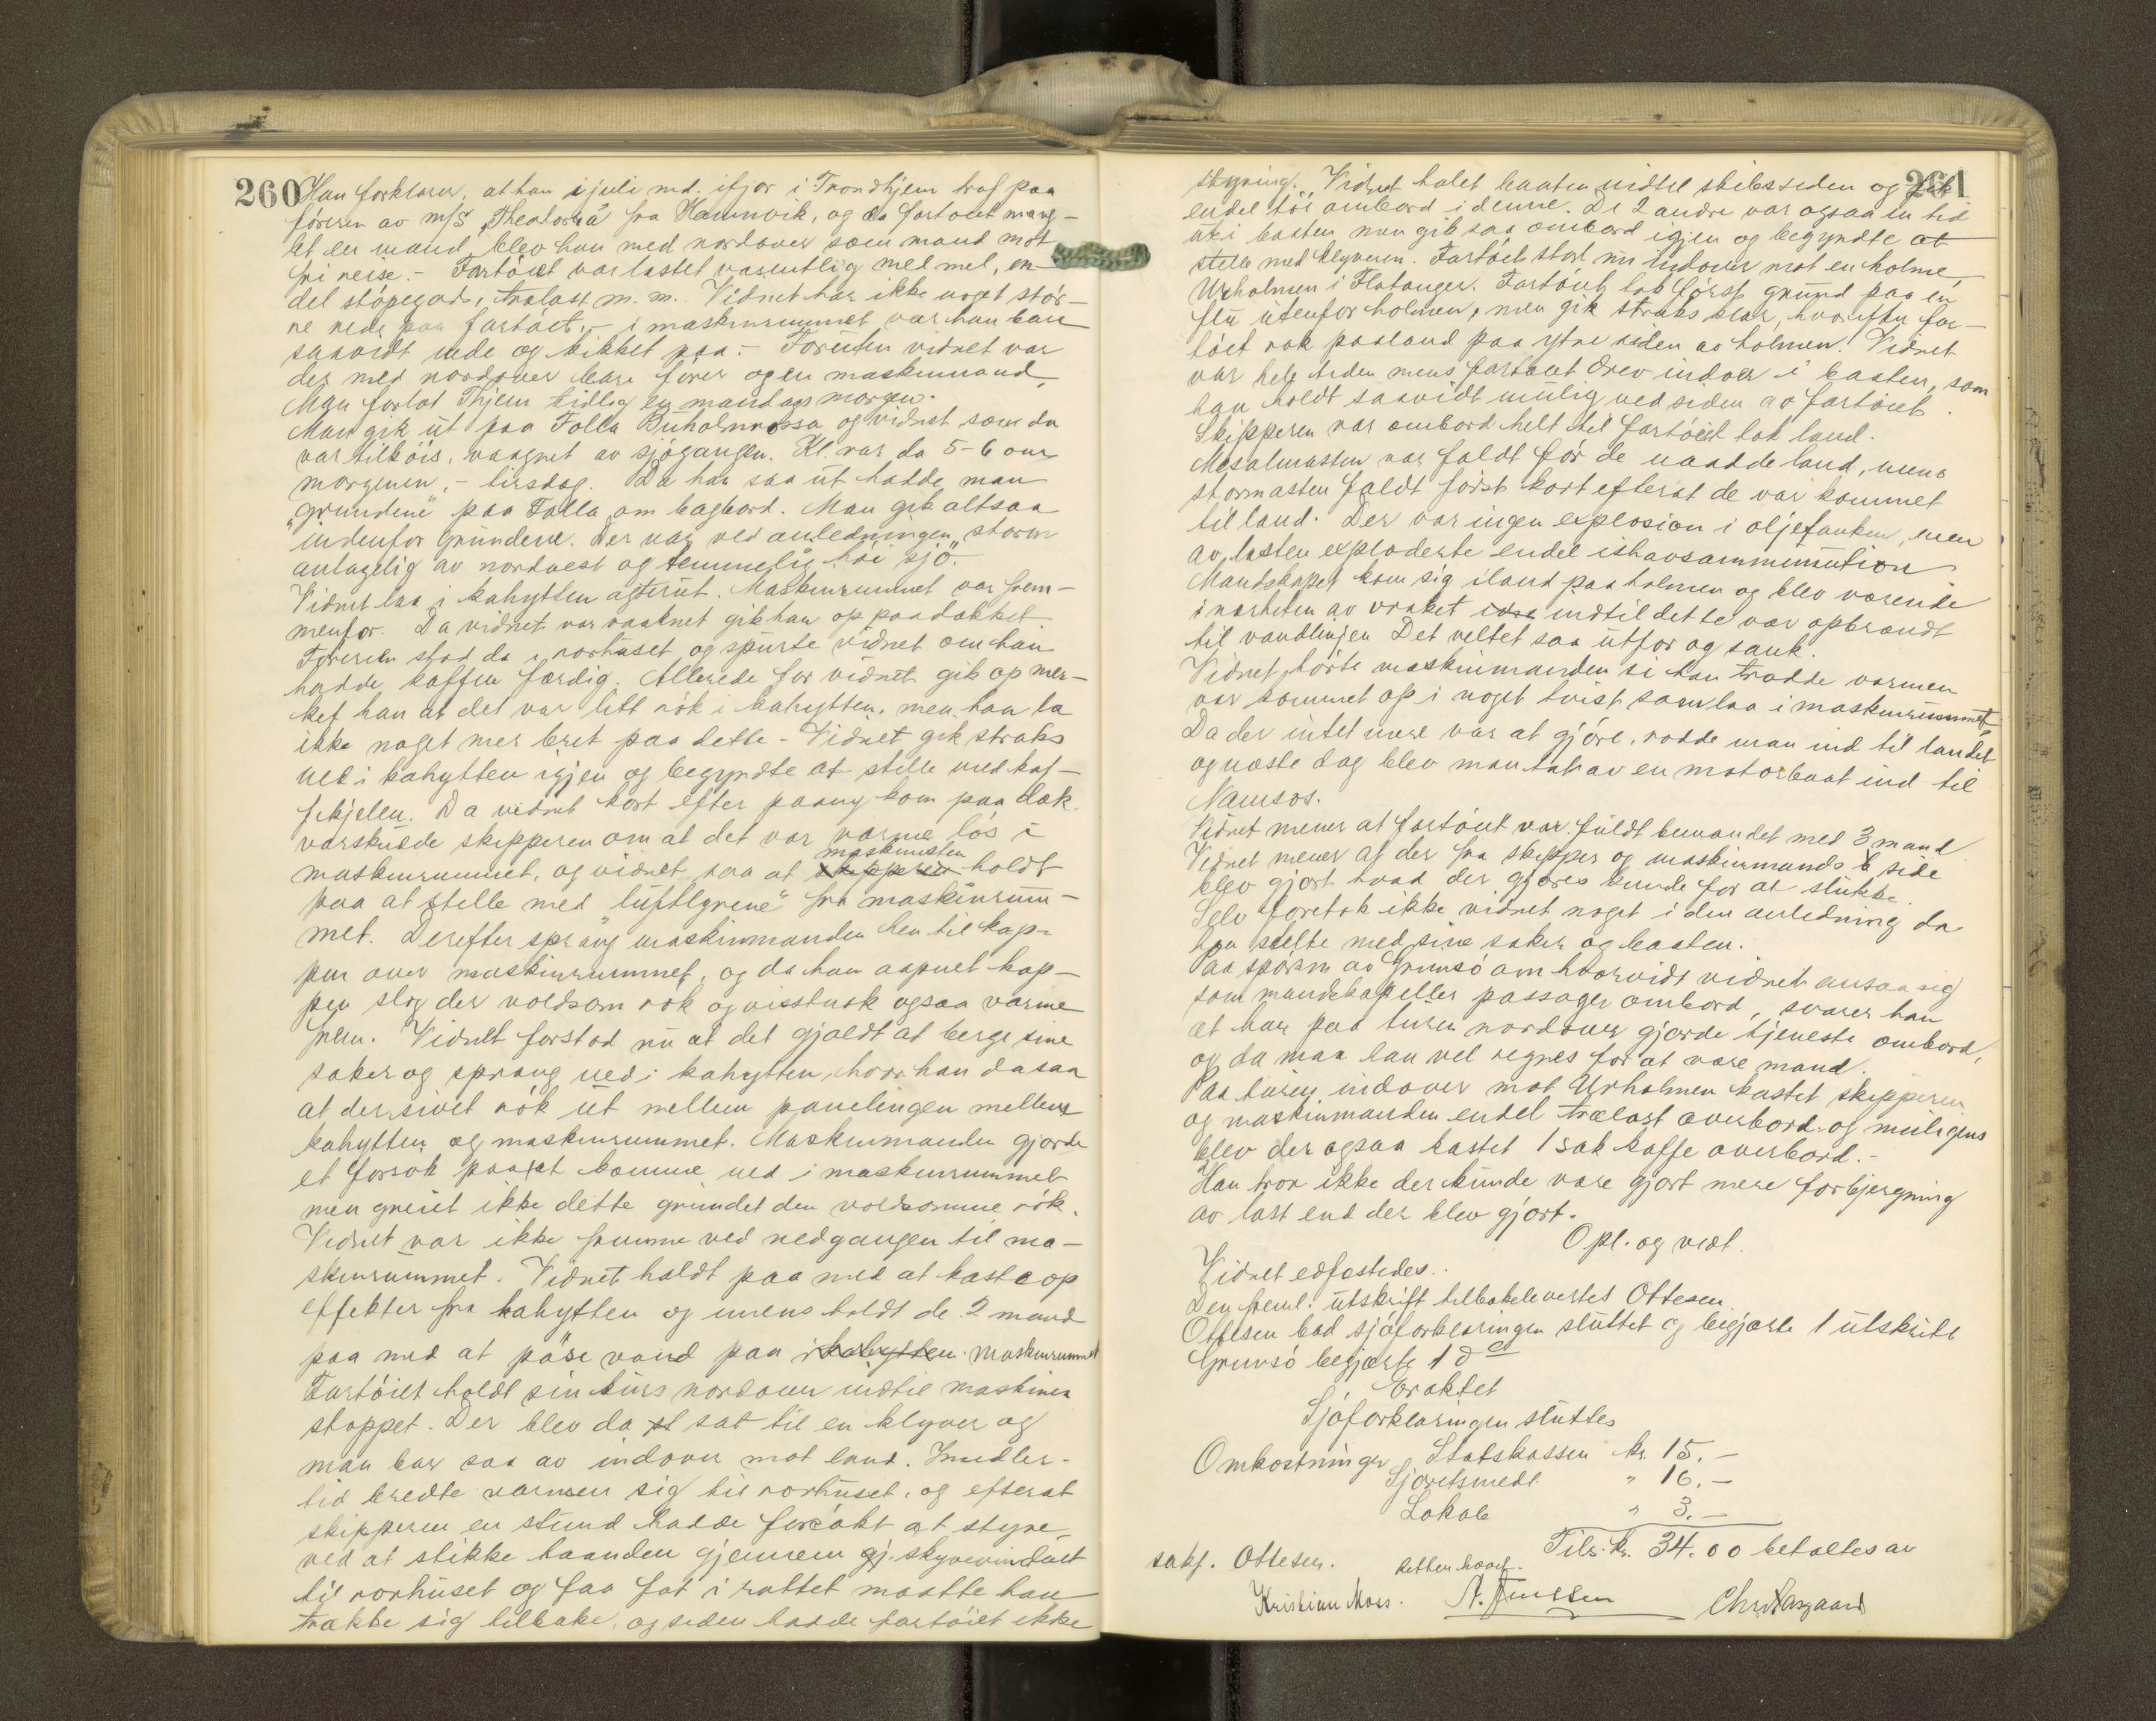 260
Han forklarer, at han i juli md. ifjor i Trondhjem traf paa
føreren av m/s "Theodora" fra Hamnvik, og da fartøiet mang-
let en mand, blev han med nordover som mand mot
fri reise. - Fartøiet var lastet væsentlig med mel, en-
del støpegods, trælast m.m. Vidnet har ikke noget stør-
re rede paa fartøiet. - i maskinrummet var han bare
saavidt nede og kikket paa. - Foruten vidnet var
der med nordover bare fører og en maskinmand.
Man forlot Thjem tidlig en mandags morgen.
Man gik ut paa Folla Buholmraasa og vidnet som da
var tilkøis, vaagnet av sjøgangen. Kl. var da 5-6 om
morgenen, - tirsdag. Da han saa ut hadde man
"grundene" paa Folla om bagbord. Man gik altsaa
indenfor Grundene. Der var ved anledningen "storm
antagelig av nordvest og temmelig høi sjø".
Vidnet laa i kahytten agterut. Maskinrummet var frem-
menfor. Da vidnet var vaaknet gik han op paa dækket.
Føreren stod da i rorhuset og spurte vidnet om han
hadde kaffen færdig. Allerede før vidnet gik op mer-
ket han at det var litt røk i kahytten, men han la
ikke noget mer bret paa dette - Vidnet gik straks
ned i kahytten igjen og begyndte at stelle med kaf-
fekjelen. Da vidnet kort efter paany kom paa dæk
varskudde skipperen om at det var varme løs i
maskinrummet, og vidnet saa at skipperen maskinisten holdt
paa at stelle med "luftlyrene" fra maskinrum-
met. Derefter sprang maskinmanden hen til kap-
pen over maskinrummet, og da han aapnet kap-
pen slog der voldsom røk og visstnok ogsaa varme
frem. Vidnet forstod nu at det gjaldt at berge sine
saker og sprang ned i kahytten, hvor han da saa
at der sivet røk ut mellem panelingen mellem
kahytten og maskinrummet. Maskinmanden gjorde
et forsøk paa at komme ned i maskinrummet
men greiet ikke dette grundet den voldsomme røk.
Vidnet var ikke fremme ved nedgangen til ma-
skinrummet. Vidnet holdt paa med at kaste op
effekter fra kahytten og imens holdt de 2 mand
paa med at pøse vand paa i kahytten. maskinrummet
Fartøiet holdt sin kurs nordover indtil maskinen
stoppet. Der blev da st sat til en klyver og
man bar saa av indover mot land. Imidler-
tid bredte varmen sig til rorhuset, og efterat
skipperen en stund hadde forsøkt at styre,
ved at stikke haanden gjennem gj. skyvevinduet
til rorhuset og faa fat i rattet maatte han
trække sig tilbake, og siden hadde fartøiet ikke
261
styring. Vidnet halet baaten indtil skibssiden og fik
endel tøi ombord i denne. De 2 andre var ogsaa en tid
nede i baaten men gik saa ombord igjen og begyndte at
stelle med klyveren. Fartøiet stod nu indover mot en holme
Urholmen i Flatanger. Fartøiet tok først grund paa en
flu utenfor holmen, men gik straks klar, hvorefter far-
tøiet rak paaland paa ytre siden av holmen. Vidnet
var hele tiden mens fartøiet drev indover i baaten, som
han holdt saavidt mulig ved siden av fartøiet.
Skipperen var ombord helt til fartøiet tok land.
Mesalmasten var faldt før de naadde land, mens
stormasten faldt først kort efterat de var kommet
til land. Der var ingen explosion i oljetanken, men
av lasten exploderte endel ishavsammunition
Mandskapet kom sig iland paa holmen og blev værende
i nærheten av vraket indtil dette var opbrændt
til vandlinjen. Det veltet saa utfor og sank.
Vidnet hørte maskinmanden si han trodde varmen
var kommet op i noget tvist som laa i maskinrummet.
Da der intet mere var at gjøre, rodde man ind til landet
og næste dag blev man tat av en motorbaat ind til
Namsos.
Vidnet mener at fartøiet var fuldt bemandet med 3 mand
Vidnet mener at der fra skipper og maskinmands side
blev gjort hvad der gjøres kunde for at slukke.
Selv foretok ikke vidnet noget i den anledning da
han stelte med sine saker og baaten.
Paa spørsm. av Grunsö om hvorvidt vidnet ansaa sig
som mandskap eller passager ombord, svarer han
at han paa turen nordover gjorde tjeneste ombord,
og da maa han vel regnes for at være mand.
Paa turen indover mot Urholmen kastet skipperen
og maskinmanden endel trælast overbord og muligens
blev der ogsaa kastet 1 sæk kaffe overbord. -
Han tror ikke der kunde være gjort mere forbjergning
av last end der blev gjort.
Opl. og vedt.
Vidnet edfæstedes.
Den freml. utskrift tilbakelevertes Ottesen.
Ottesen bad sjøforklaringen sluttet og begjærte 1 utskrift
Grunsö begjærte 1 do
Eraktet
Sjøforklaringen sluttes
Omkostninger Statskassen kr. 15.-
Sjøretsmedl. " 16.-
Lokale " 3.-
Tils. kr. 34.00 betaltes av
sakf. Ottesen. Retten hævet.
Kristian Moes. A. Jenssen Chr. Aasgaard